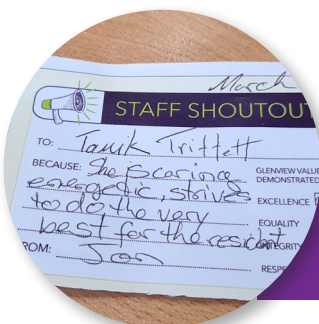 March
STAFF SHOUTOUT
TO: Tanik Triffett
BECAUSE: She is caring
energetic, strives
to do the very
best for the resident
FROM: Jon
GLENVIEW VALUE
DEMONSTRATED
EXCELLENCE
EQUALITY
INTEGRITY
RESPE